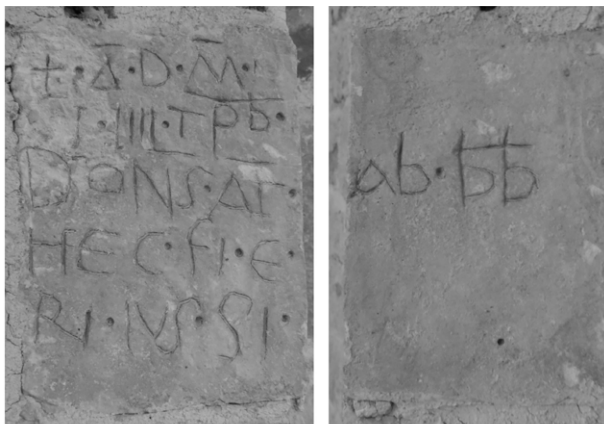 +·Ā·D·M̄·
I·IIII·T P̄b̄·
DONS·AT·
HEC·FI·E·
RI·IVS·SI·
ab·b̄b̄